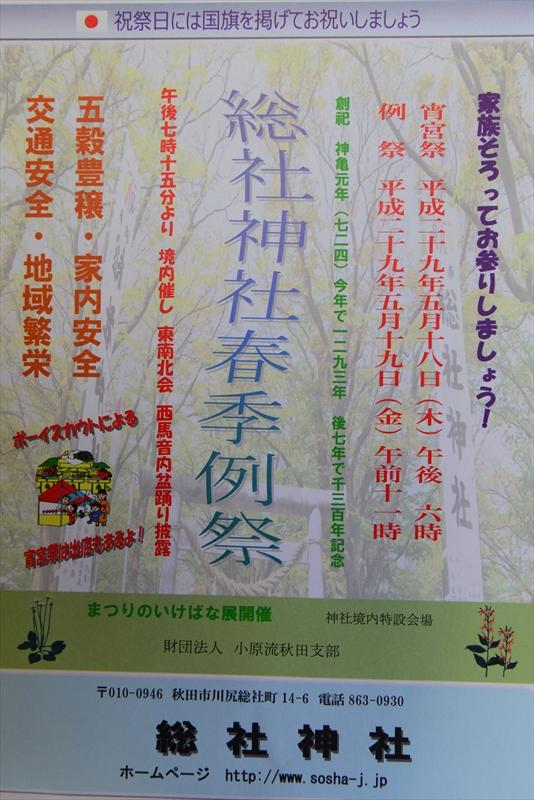 祝祭日には国旗を掲げてお祝いしましょう
家族そろってお参りしましょう!
宵宮祭 平成二十九年五月十八日(木)午後 六時
例 祭 平成二十九年五月十九日(金)午前十一時
創祀 神亀元年(七二四)今年で一二九三年 後七年で千三百年記念
総社神社春季例祭
午後七時十五分より 境内催し 東南北会 西馬音内盆踊り披露
五穀豊穣・家内安全
交通安全・地域繁栄
ボーイスカウトによる
宵宮祭は出店もあるよ!
総社神社
まつりのいけばな展開催 神社境内特設会場
財団法人 小原流秋田支部
〒010-0946 秋田市川尻総社町 14-6 電話 863-0930
総社神社
ホームページ http://www.sosha-j.jp